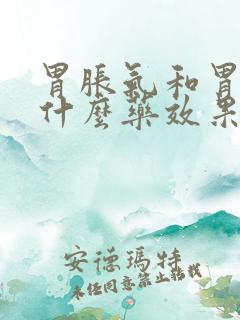 胃脹氣和胃
什麼藥效果
安德瑪特
未经同意禁止转载